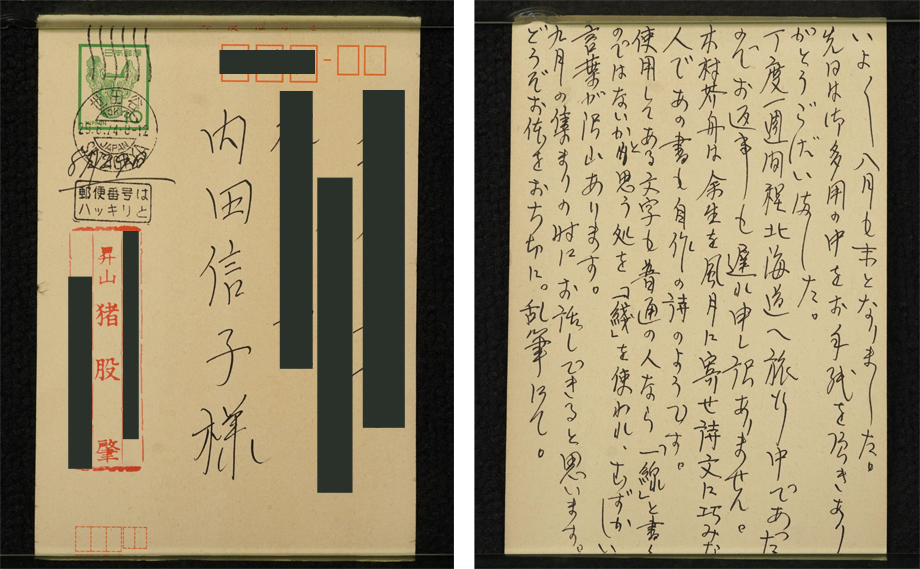 日本郵便
世田谷
TOKYO
JAPAN
郵便番号は
ハッキリと
内田信子様
昇山
猪股肇
いよ〱八月も末となりました。
先日は御多用の中をお手紙を頂きあり
がとうございました。
丁度一週間程北海道へ旅行中であった
のでお返事も遅れ申し訳ありません。
木村芥舟は余生を風月に寄せ詩文に巧みな
人であの書も自作の詩のようです。
使用してある文字も普通の人なら「線」と書く
のではないかと思う処を「綫」を使われ、むずかしい
言葉が沢山あります。
九月の集まりの時にお話しできると思います。
どうぞお体をおちちに。乱筆にて。